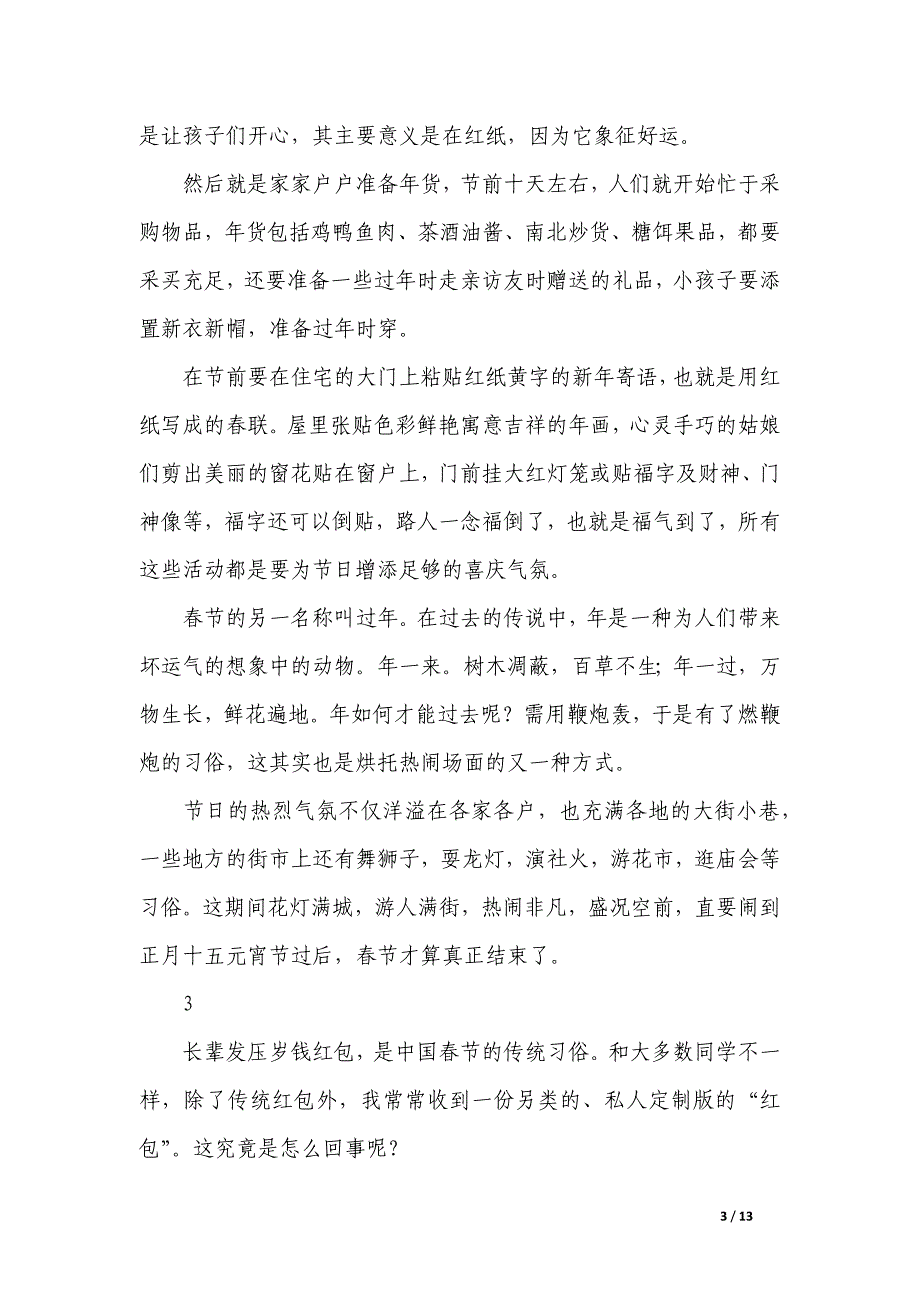 是让孩子们开心，其主要意义是在红纸，因为它象征好运。
然后就是家家户户准备年货，节前十天左右，人们就开始忙于采
购物品，年货包括鸡鸭鱼肉、茶酒油酱、南北炒货、糖饵果品，都要
采买充足，还要准备一些过年时走亲访友时赠送的礼品，小孩子要添
置新衣新帽，准备过年时穿。
在节前要在住宅的大门上粘贴红纸黄字的新年寄语，也就是用红
纸写成的春联。屋里张贴色彩鲜艳寓意吉祥的年画，心灵手巧的姑娘
们剪出美丽的窗花贴在窗户上，门前挂大红灯笼或贴福字及财神、门
神像等，福字还可以倒贴，路人一念福倒了，也就是福气到了，所有
这些活动都是要为节日增添足够的喜庆气氛。
春节的另一名称叫过年。在过去的传说中，年是一种为人们带来
坏运气的想象中的动物。年一来。树木凋蔽，百草不生；年一过，万
物生长，鲜花遍地。年如何才能过去呢？需用鞭炮轰，于是有了燃鞭
炮的习俗，这其实也是烘托热闹场面的又一种方式。
节日的热烈气氛不仅洋溢在各家各户，也充满各地的大街小巷，
一些地方的街市上还有舞狮子，耍龙灯，演社火，游花市，逛庙会等
习俗。这期间花灯满城，游人满街，热闹非凡，盛况空前，直要闹到
正月十五元宵节过后，春节才算真正结束了。
3
长辈发压岁钱红包，是中国春节的传统习俗。和大多数同学不一
样，除了传统红包外，我常常收到一份另类的、私人定制版的“红
包”。这究竟是怎么回事呢？
3 / 13